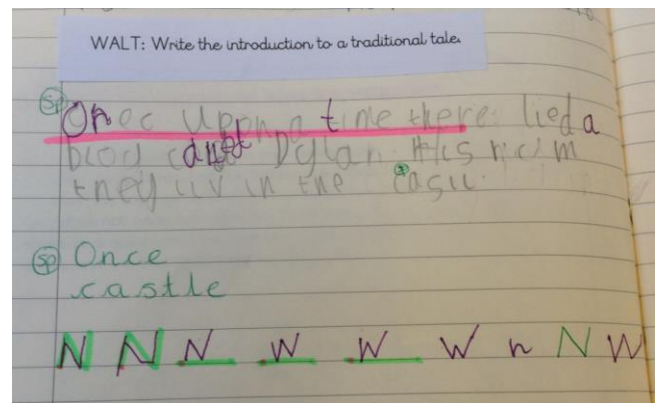 WALT: Write the introduction to a traditional tale.
sp
Onec upon a time there lied a
Dylan. His
they liv in the
sp Once
castle
N N N W W W n N W